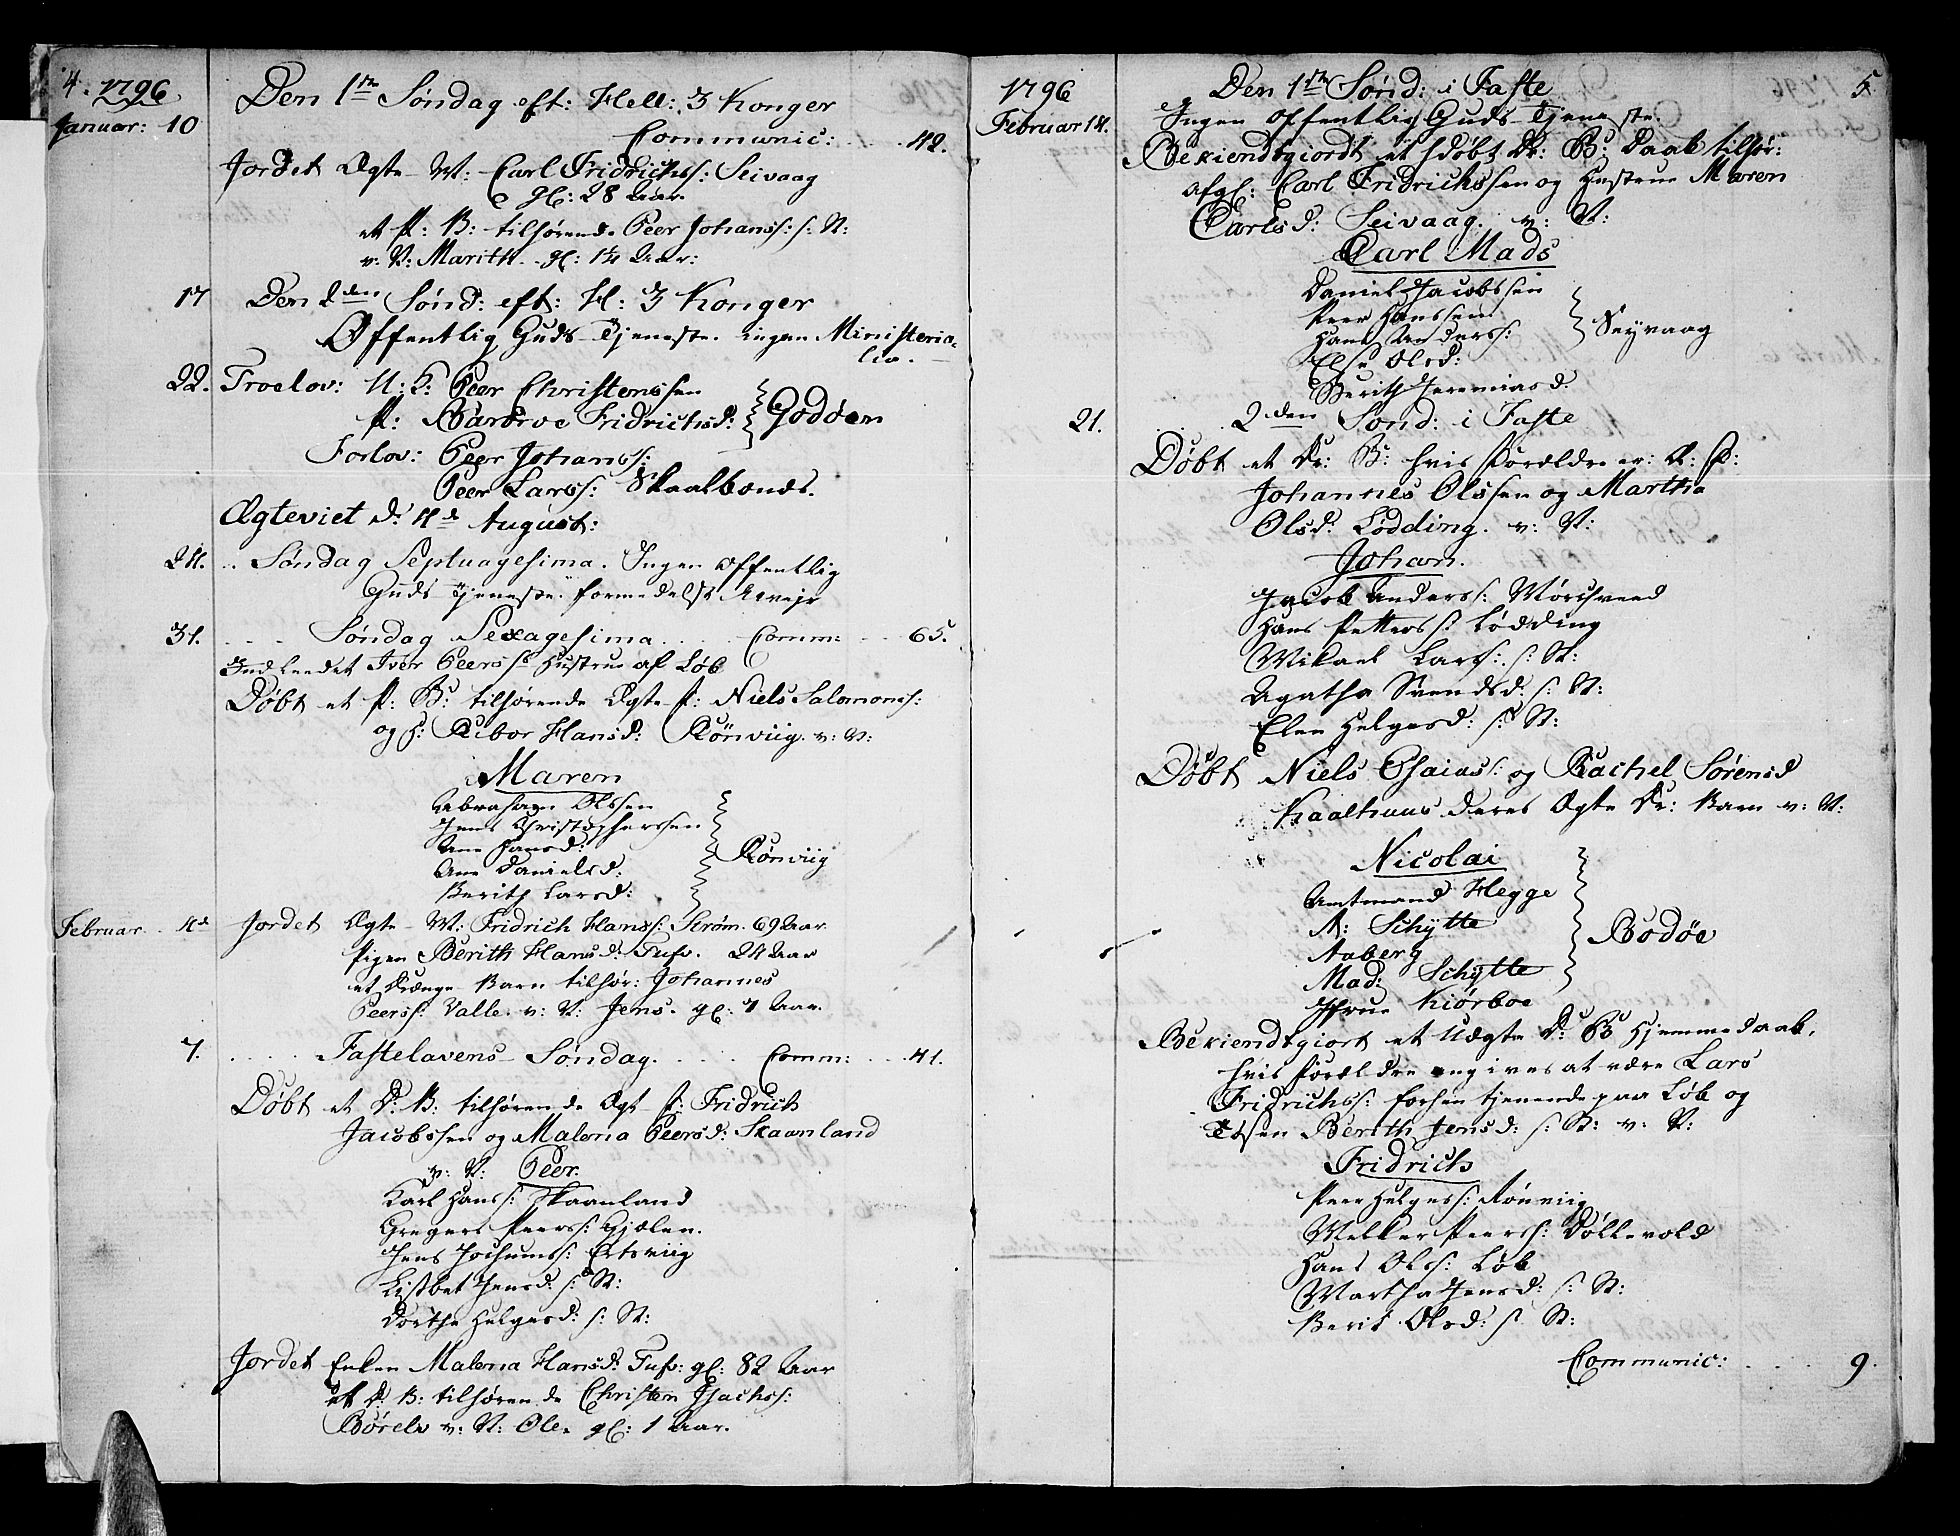 4. 1796
Januar: 10
Den 1te Søndag eft: Hell: 3 Konger
Communic: 48.
Jordet Ægte M: Carl Fridrichss: Seivaag
gl: 28 Aar.
et P: B: tilhørende Peer Johanss: s: St:
v: N: Marith gl: 1¼ Aar:
17 Den 2den Sønd: eft: H: 3 Konger
Offentlig Guds-Tjeneste. ingen Ministeria-
lia.
22. Troelov: U: K: Peer Christenssen
P: Barbroe Fridrichsd: Godøen
Forlov: Peer Johanss:
Peer Larss: Skaalbonds.
Ægteviet d: 4de August:
24. Søndag Septuagesima. Ingen offentlig
Guds-Tjeneste formedelst Uveir
31. Søndag Sexagesima Comm: 65.
Indleedet Iver Peerss: Hustrue af Løb
Døbt et P: B: tilhørende Ægte P: Niels Salomonss:
og H: Ribor Hansd: Rønviig. v: N:
Maren
Abraham Olssen
Jens Christopherssen
Ane Hansd:
Ane Danielsd:
Berith Larsd:
Rønviig
Februar 4de Jordet Ægte M: Fridrich Hanss: Strøm. 69 Aar
Pigen Berith Hansd: Tufv. 24 Aar
et Drænge Barn tilhør: Johannes
Peerss: Valle. v: N: Jens. gl: 7 Aar.
7. Fastelavens-Søndag. Comm: 41.
Døbt et D: B: tilhørende Ægt P: Fridrich
Jacobssen og Malena Peersd: Skaanland
v: N: Peer.
Karl Hanss: Skaanland
Gregers Peerss: Gjælen.
Jens Jochumss: Ertsviig
Lisbet Jensd: s: St:
Dorthe Helgesd: s: St:
Jordet Enken Malena Hansd: Tufv: gl: 82 Aar
et D: B: tilhørende Christen Isachss:
Børelv v: N: Ole. gl: 1 Aar.
1796
Februar 14.
5.
Den 1te Sønd: i Faste
Ingen offentlig Guds-Tjeneste.
Bekiendtgiordt et hdøbt Dr: B: Daab tilhør:
afgl: Carl Fridrichssen og Hustrue Maren
Carlsd: Seivaag. v: N:
Carl Mads
Daniel Jacobssen
Peer Hanssen
Hans Anderss:
Else Olsd:
Berith Jeremiasd.
Seyvaag
21. 2den Sønd: i Faste
Døbt et Dr: B: hvis Forældre er: Æ: P:
Johannes Olssen og Martha
Olsd: Lødding. v: N:
Johan.
Jacob Anderss: Mørchveed
Hans Petterss: Lødding
Mikael Larss: s: St:
Agatha Svendsd: s: St:
Elen Helgesd: s: St:
Døbt Niels Esaiass: og Rachel Sørensd
Kaalhuus deres Ægte Dr: Barn v: N:
Nicolai
Amtmand Hegge
Mr: Schytte
Aaberg
Mad: Schytte
Jfrue Kiørboe
Bodøe
Bekiendtgiort et Uægte D: B: Hjemmedaab,
hvis Forældre angives at være Lars
Fridrichss: forhen tjenende paa Løb og
Tøsen Berith Jensd: s: St: v: N:
Fridrich
Peer Helgess: Rønviig
Melker Peerss: Døllevold
Hans Olss: Løb
Martha Jensd: s: St:
Berit Olsd: s: St:
Communic: 9.